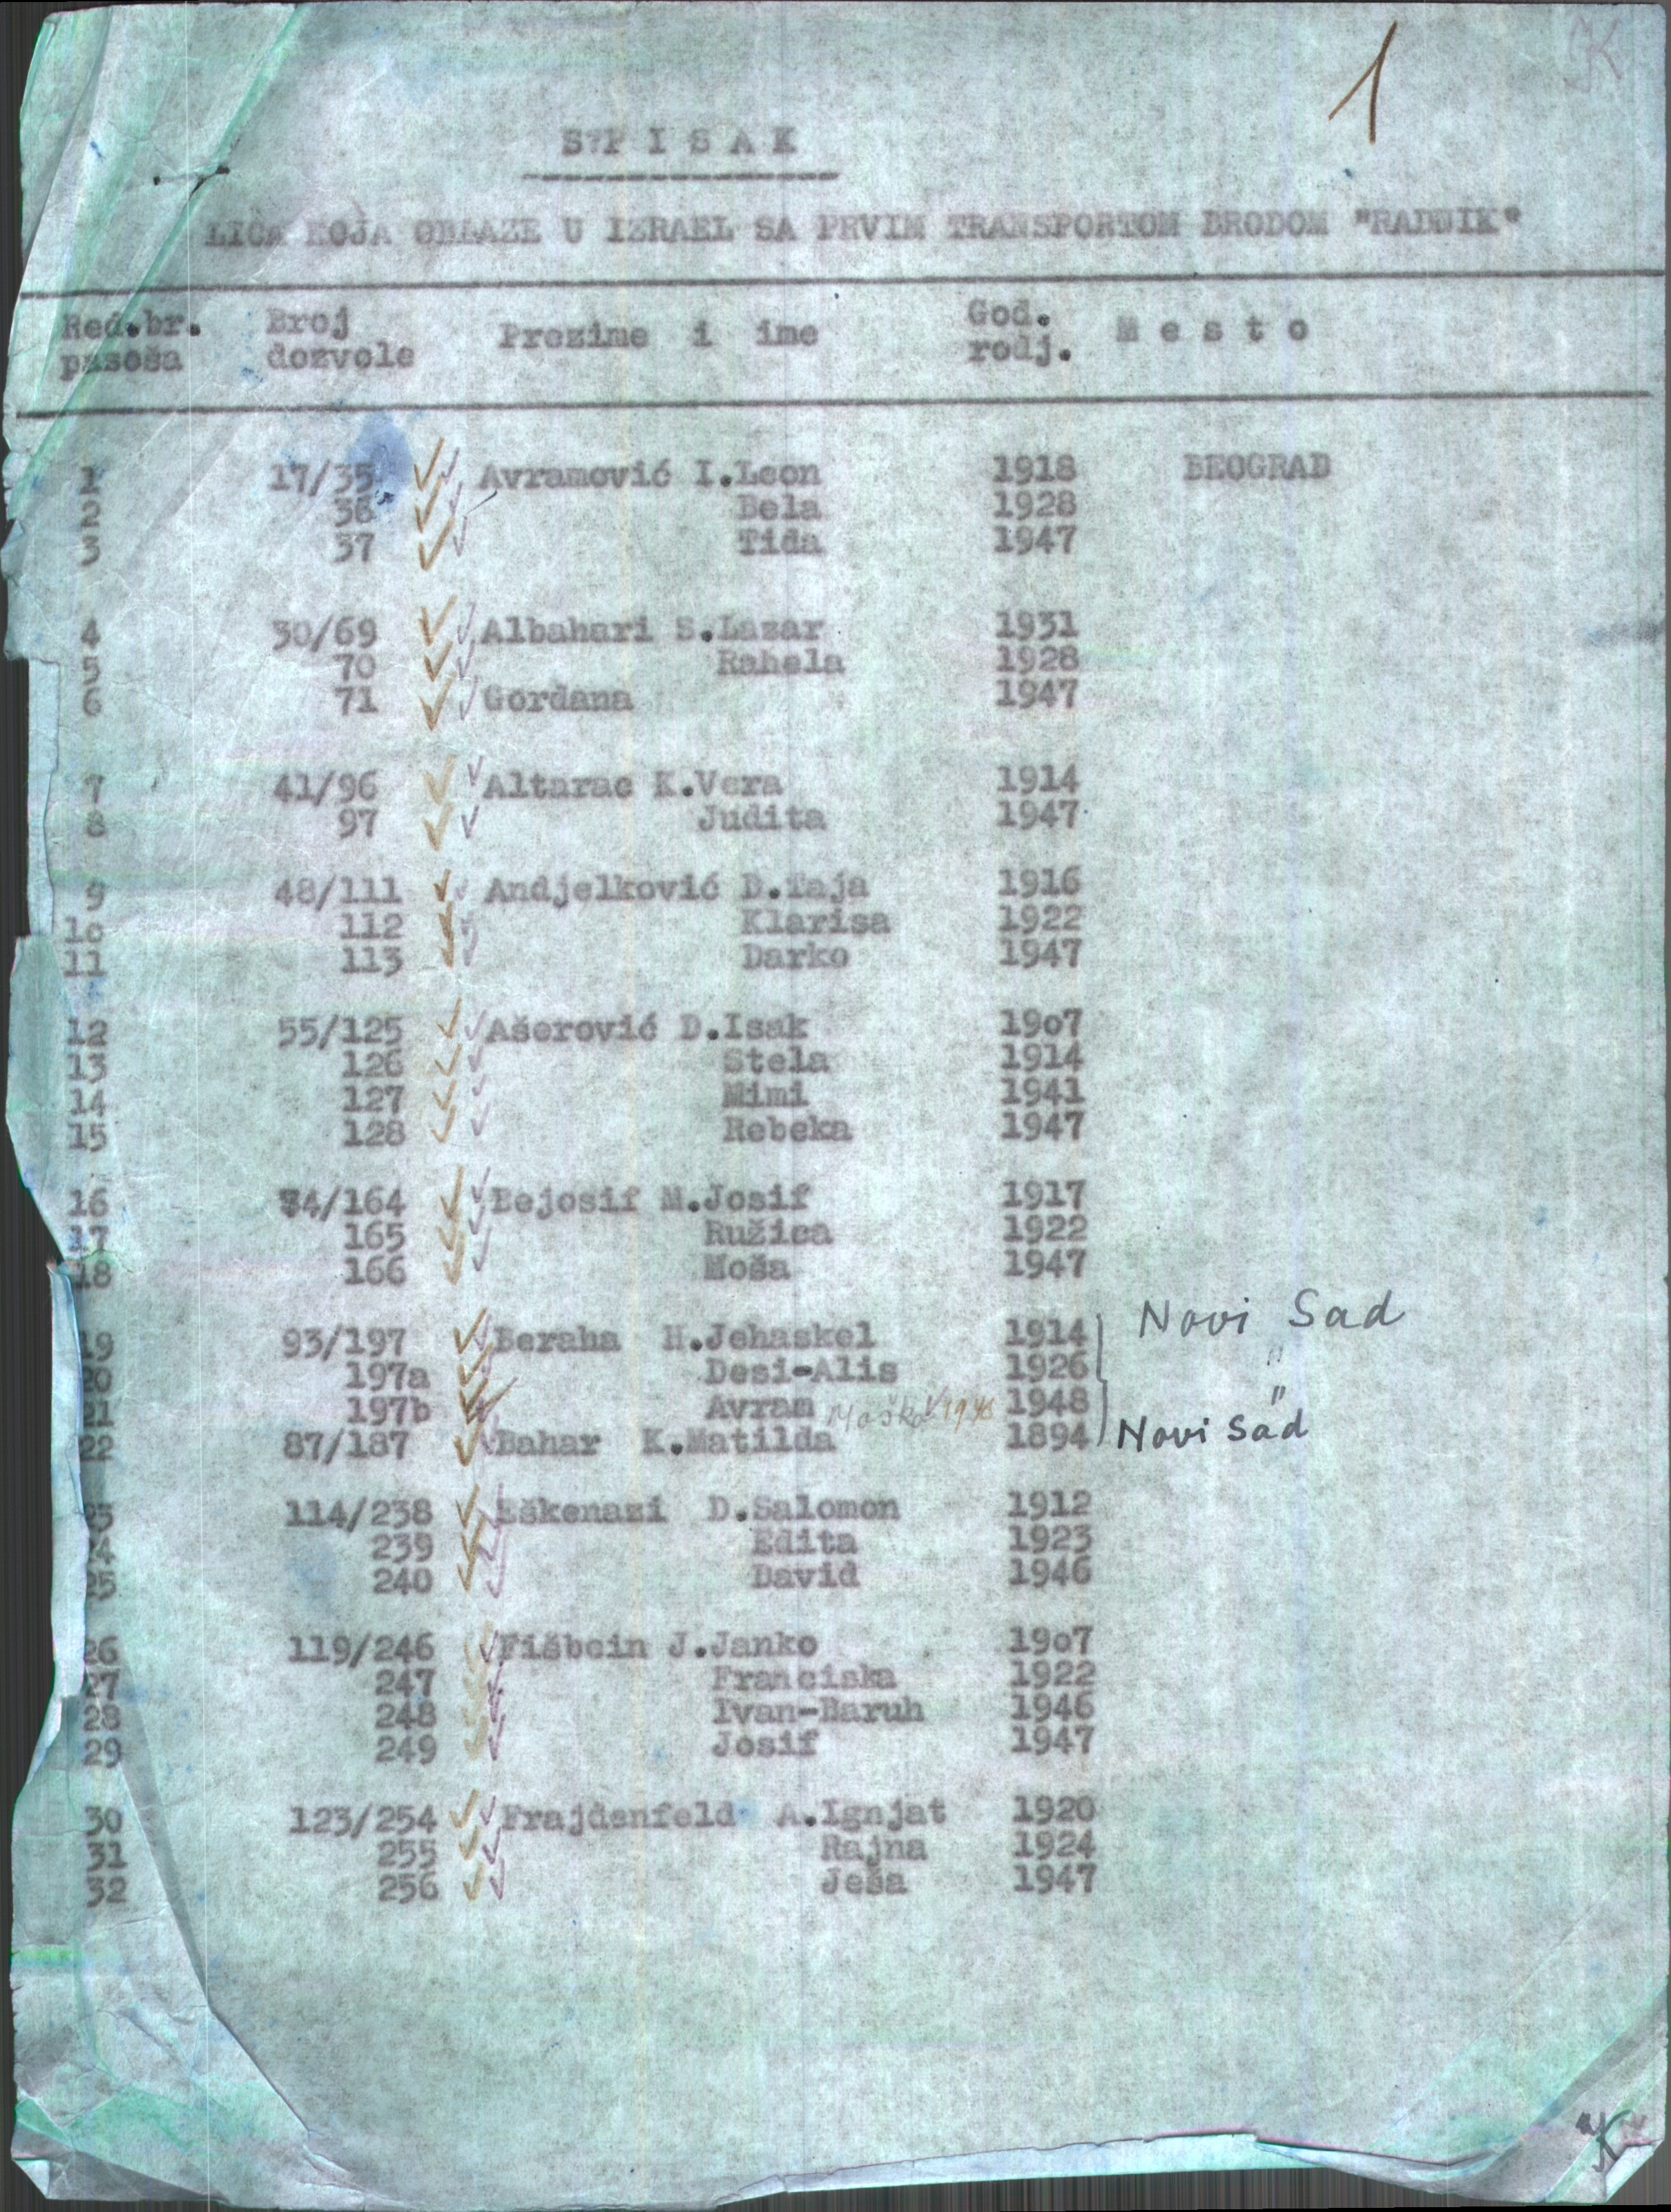 1
S P I S A K
LICA KOJA ODLAZE U IZRAEL SA PRVIM TRANSPORTOM BRODOM "RADNIK"
Red.br. pasoša Broj dozvole Prezime i ime God. rodj. M e s t o
1 17/35 Avramović I.Leon 1918 BEOGRAD
2 36 Bela 1928
3 37 Tida 1947
4 30/69 Albahari S.Lazar 1931
5 70 Rahela 1928
6 71 Gordana 1947
7 41/96 Altarac K.Vera 1914
8 97 Judita 1947
9 48/111 Andjelković D.Taja 1916
1o 112 Klarisa 1922
11 113 Darko 1947
12 55/125 Ašerović D.Isak 19o7
13 126 Stela 1914
14 127 Mimi 1941
15 128 Rebeka 1947
16 74/164 Bejosif M.Josif 1917
17 165 Ružica 1922
18 166 Moša 1947
19 93/197 Beraha H.Jehaskel 1914 Novi Sad
20 197a Desi-Alis 1926 "
21 197b Avram 1948 "
22 87/187 Bahar K.Matilda 1894 Novi Sad
23 114/238 Eškenazi D.Salomon 1912
24 239 Edita 1923
25 240 David 1946
26 119/246 Fišbein J.Janko 19o7
27 247 Franciska 1922
28 248 Ivan-Baruh 1946
29 249 Josif 1947
30 123/254 Frajdenfeld A.Ignjat 1920
31 255 Rajna 1924
32 256 Ješa 1947